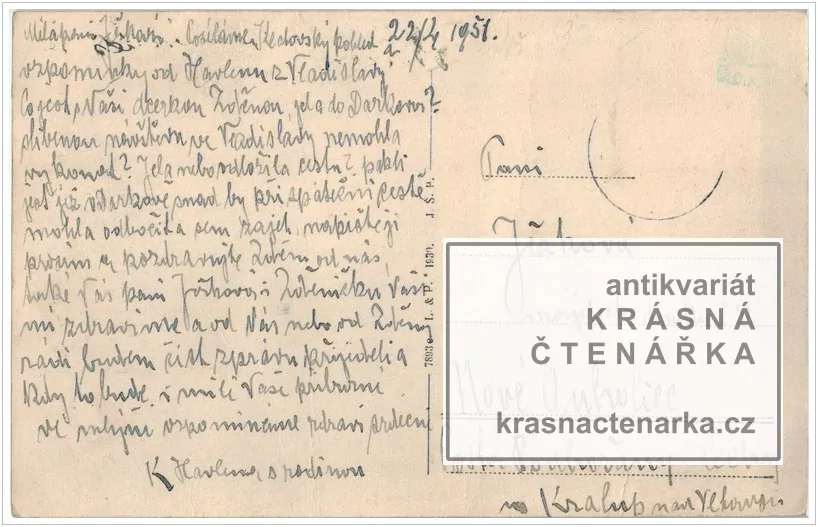 Milá paní Jirková! Posíláme Ledovský pohled a 22/4 1951.
vzpomínky od Havlenu z Vladislavy
Co jest s Vaší dcerkou Zděnou, jela do Darkova?
slíbenou návštěvu ve Vladislavy nemohla
vykonat? Jela nebo odložila cestu? pakli
jest již v Darkově snad by při zpáteční cestě
mohla odbočit a sem zajet, napište jí
prosím a pozdravujte Zděnu od nás,
také Vás paní Jirková i Zděničku Vaši
my zdravíme a od Vás nebo od Zděny
rádi budem číst zprávu přijedeli a
kdy to bude. i milí Vaši příbuzní
ve mlýně vzpomínáme zdraví srdečně
K Havlena s rodinou
7893 L. & P. 1930. J. Š. P.
Paní
Jirková
Nové
Kralup nad Vltavou
antikvariát
KRÁSNÁ
ČTENÁŘKA
krasnactenarka.cz